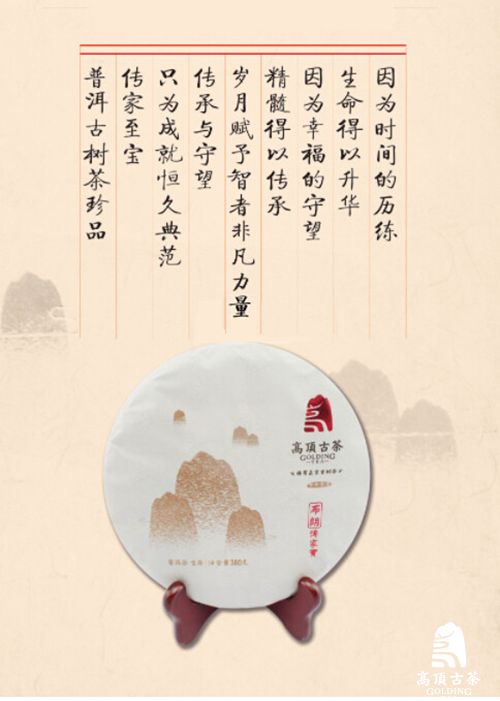 因为时间的历练
生命得以升华
因为幸福的守望
精髓得以传承
岁月赋予智者非凡力量
传承与守望
只为成就恒久典范
传家至宝
普洱古树茶珍品
高頂古茶
GOLDING
布朗
傳家寶
普洱茶 生茶 净含量360克
高頂古茶
GOLDING